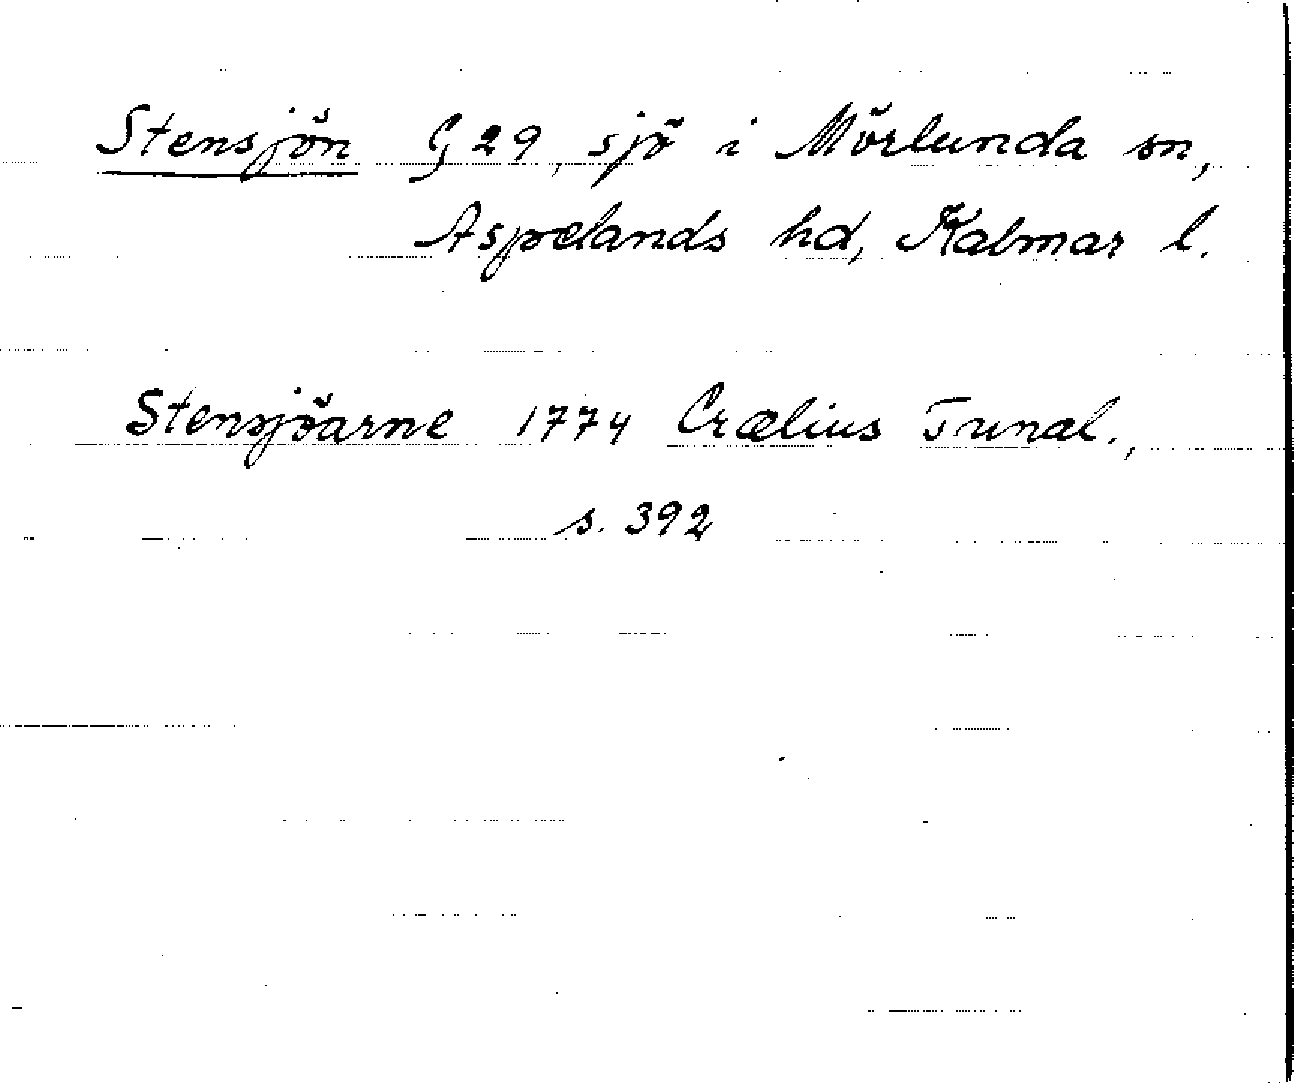 Stensjön G 29, sjö i Mörlunda sn,
Aspelands hd, Kalmar l.
Stensjöarne 1774 Crælius Tunal.,
s. 392